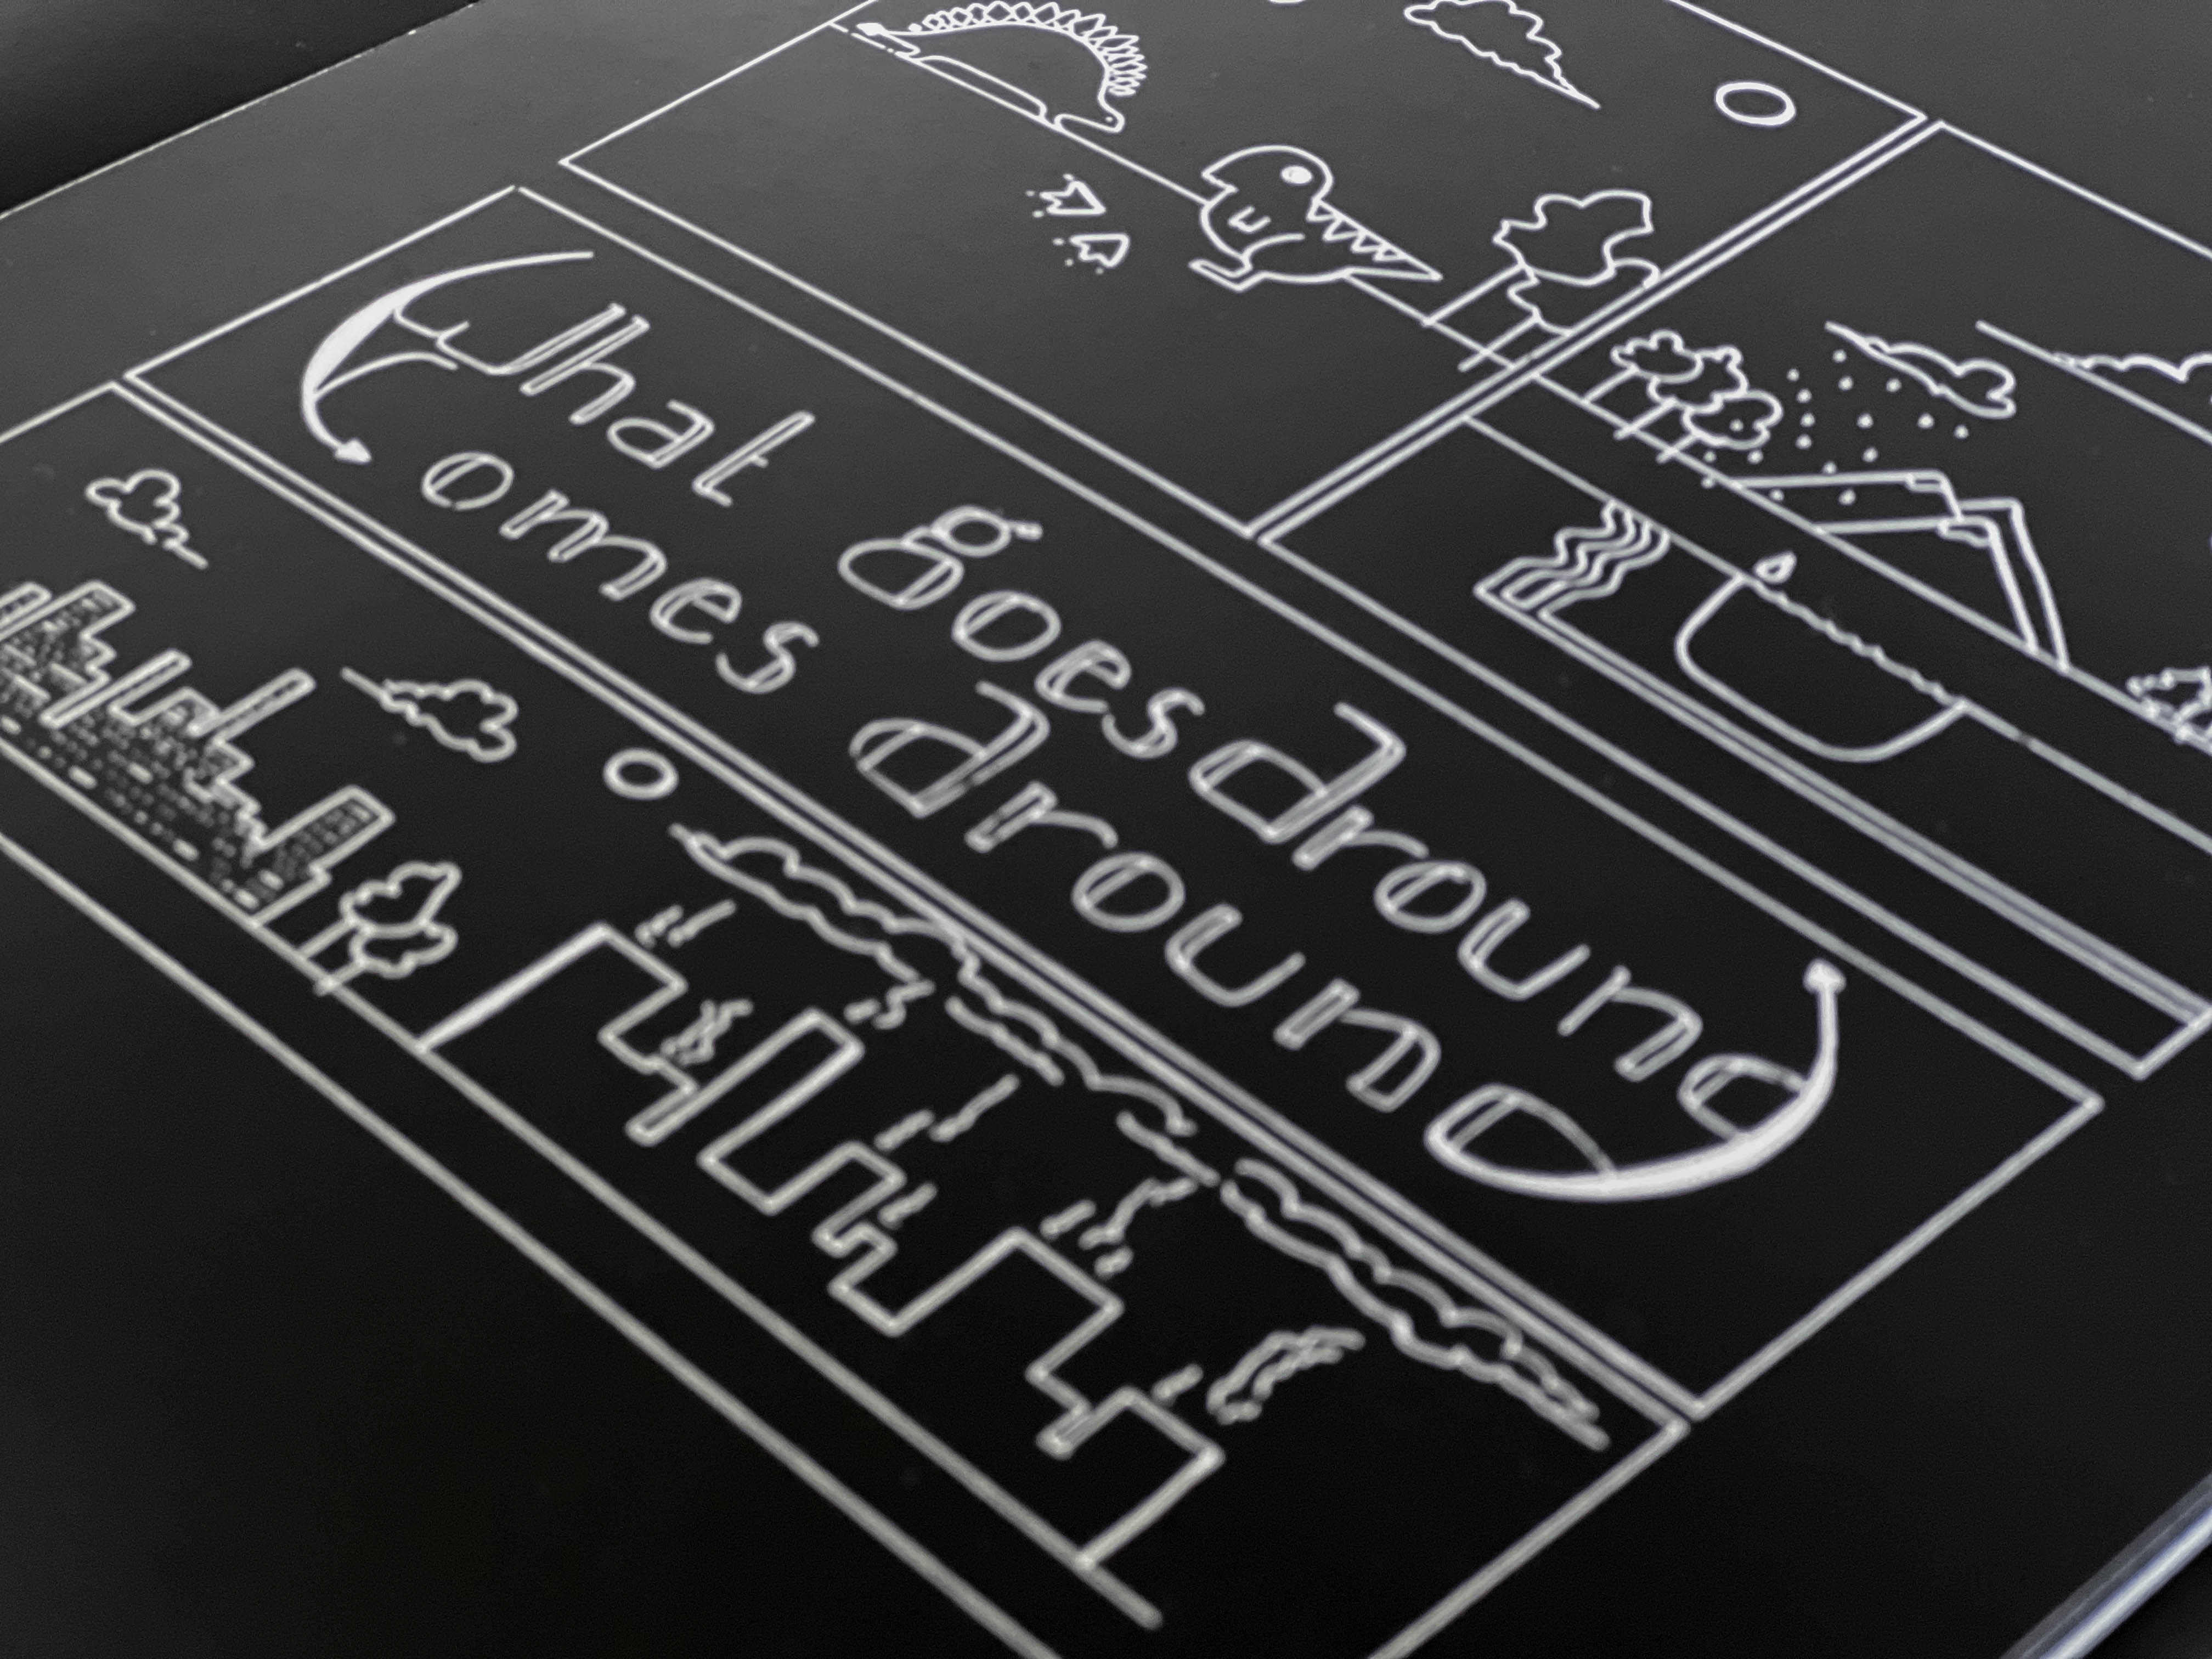 What goes around
Comes around